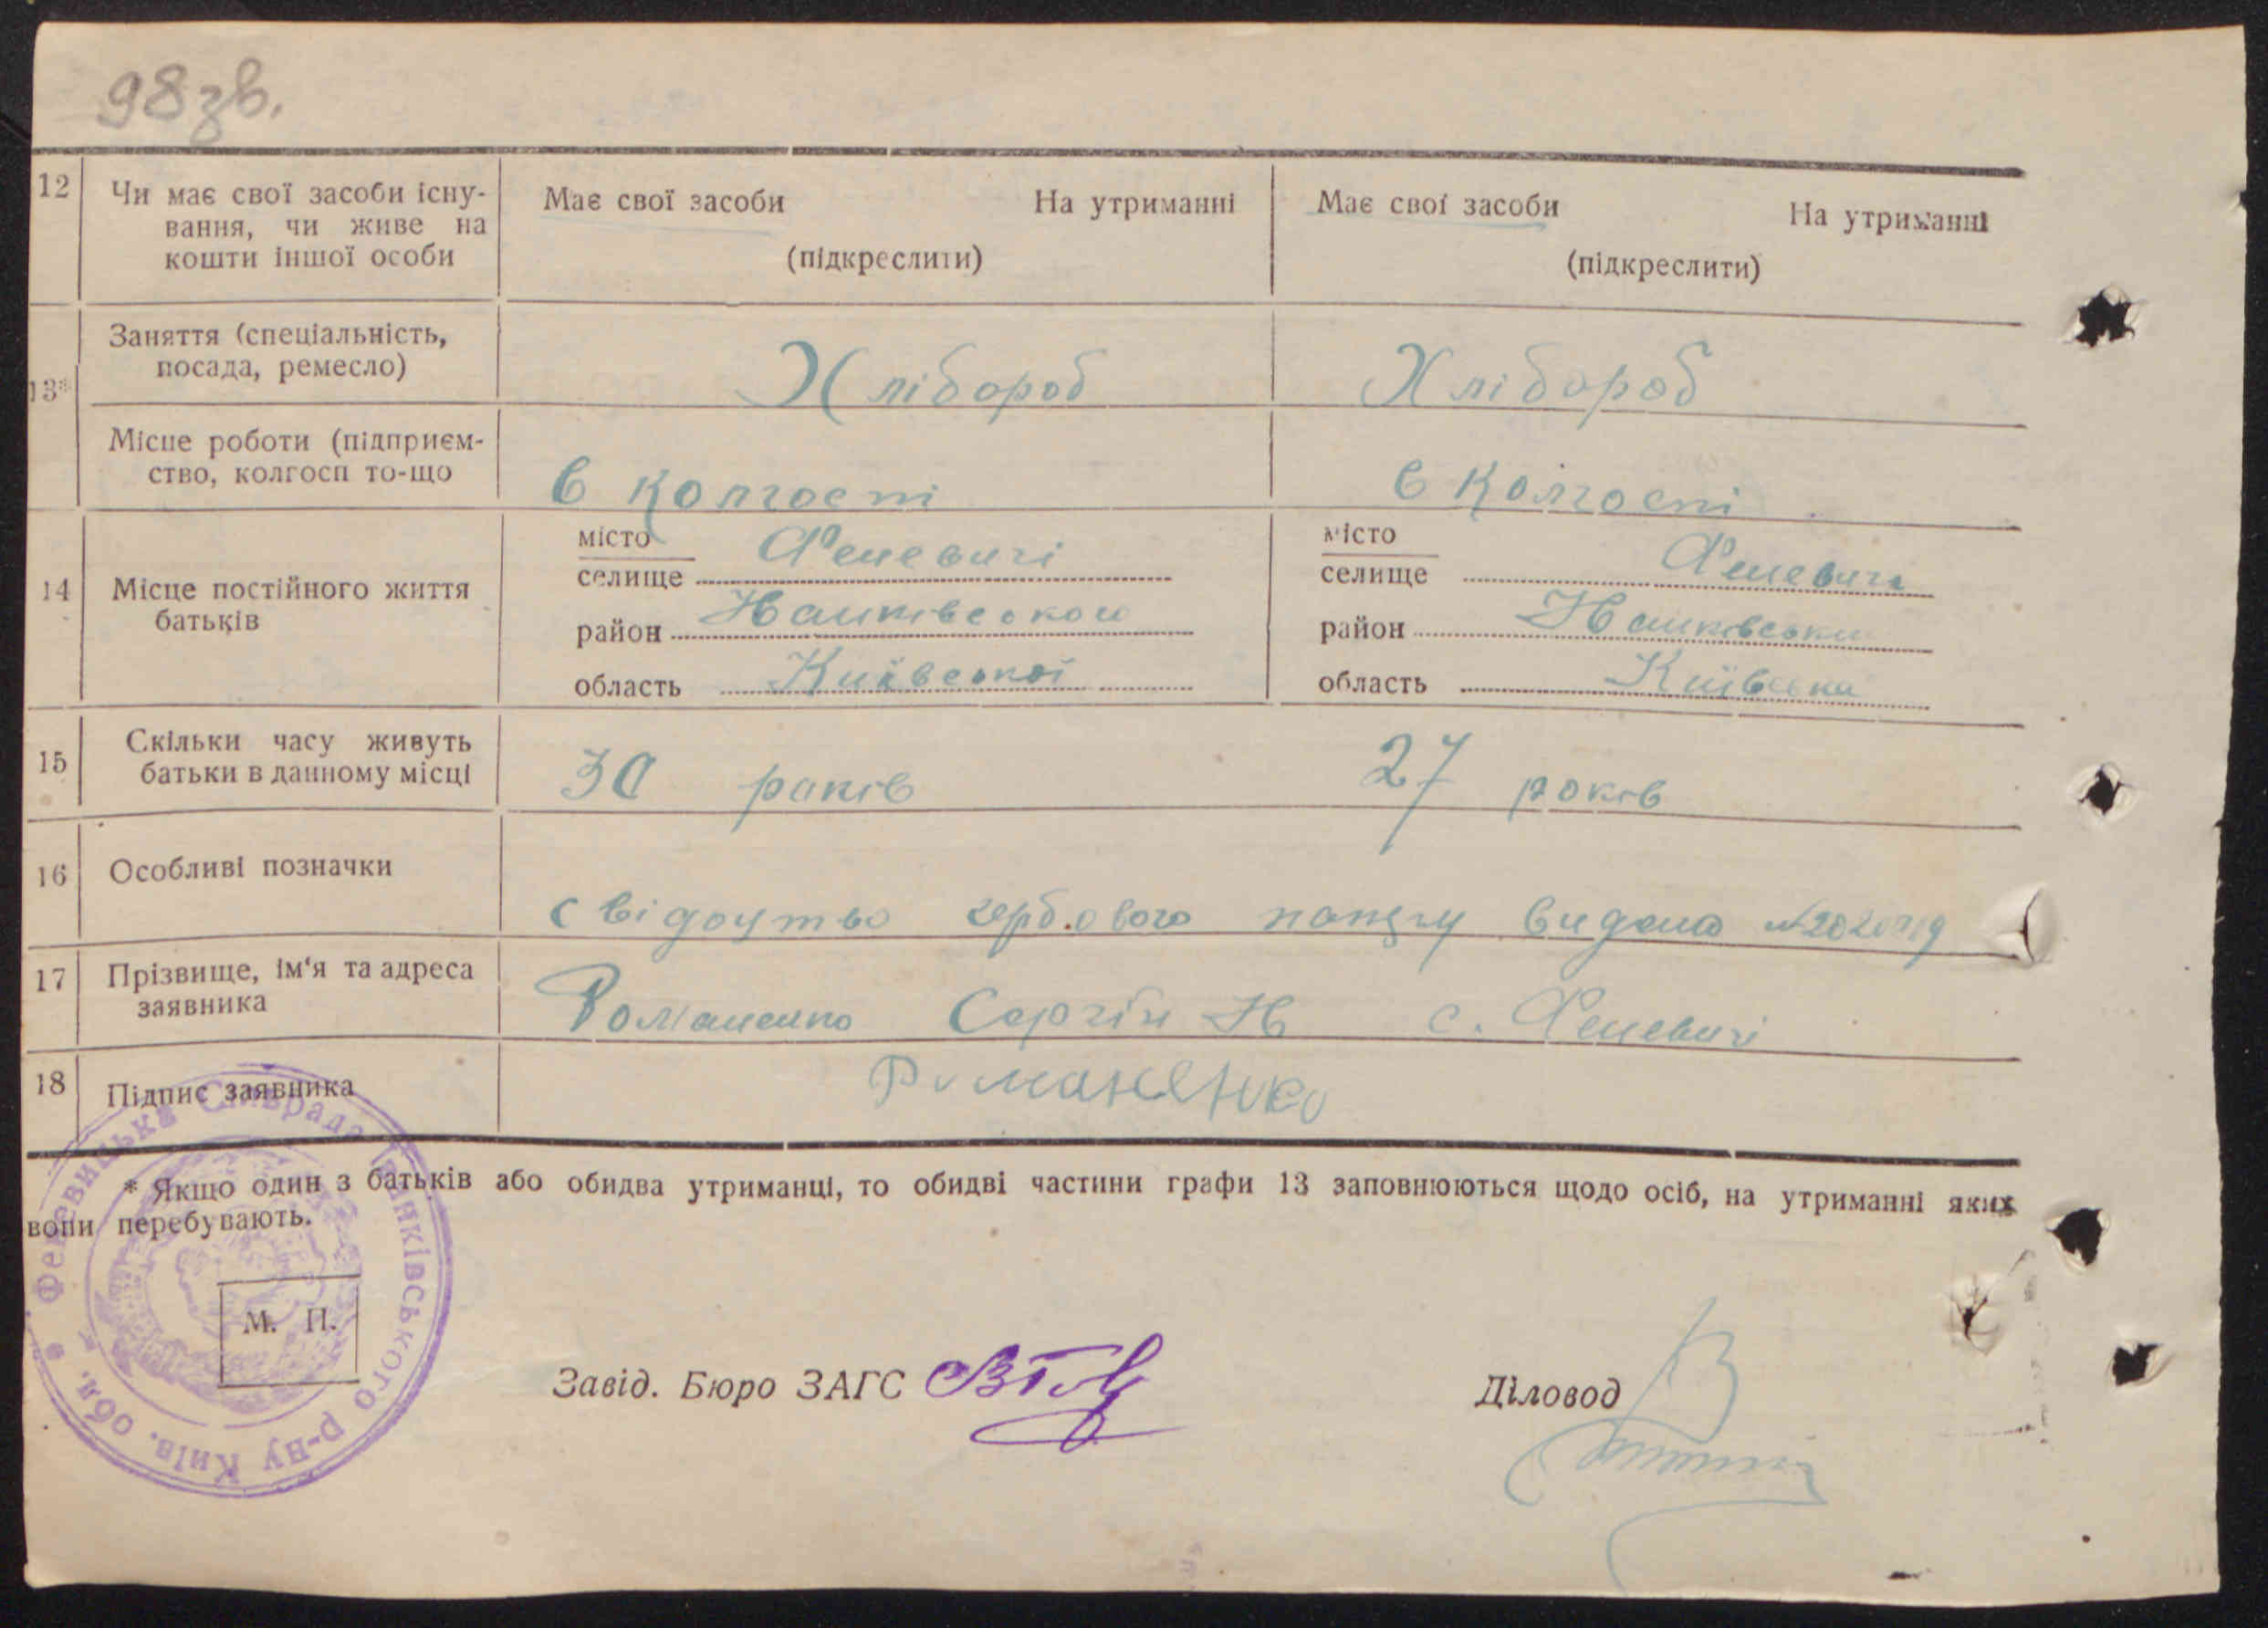 98 зв.
12 Чи має свої засоби існу-
вання, чи живе на
кошти іншої особи
Має свої засоби На утриманні
(підкреслити)
Має свої засоби На утриманні
(підкреслити)
13* Заняття (спеціальність,
посада, ремесло)
Хлібороб Хлібороб
Місце роботи (підприєм-
ство, колгосп то-що
в колгоспі в колгоспі
14 Місце постійного життя
батьків
місто
селище Феневичі
район
область Київської
місто
селище Феневичі
район
область Київська
15 Скільки часу живуть
батьки в данному місці
30 років 27 років
16 Особливі позначки
свідоцтво герб.ового видано
17 Прізвище, ім'я та адреса
заявника
Романенко Сергій с. Феневичі
18 Підпис заявника
Романенко
* Якщо один з батьків або обидва утриманці, то обидві частини графи 13 заповнюються щодо осіб, на утриманні яких
вони перебувають.
Феневицька Сільрада Іванківського р-ну Київ. обл.
М. П.
Завід. Бюро ЗАГС
Діловод